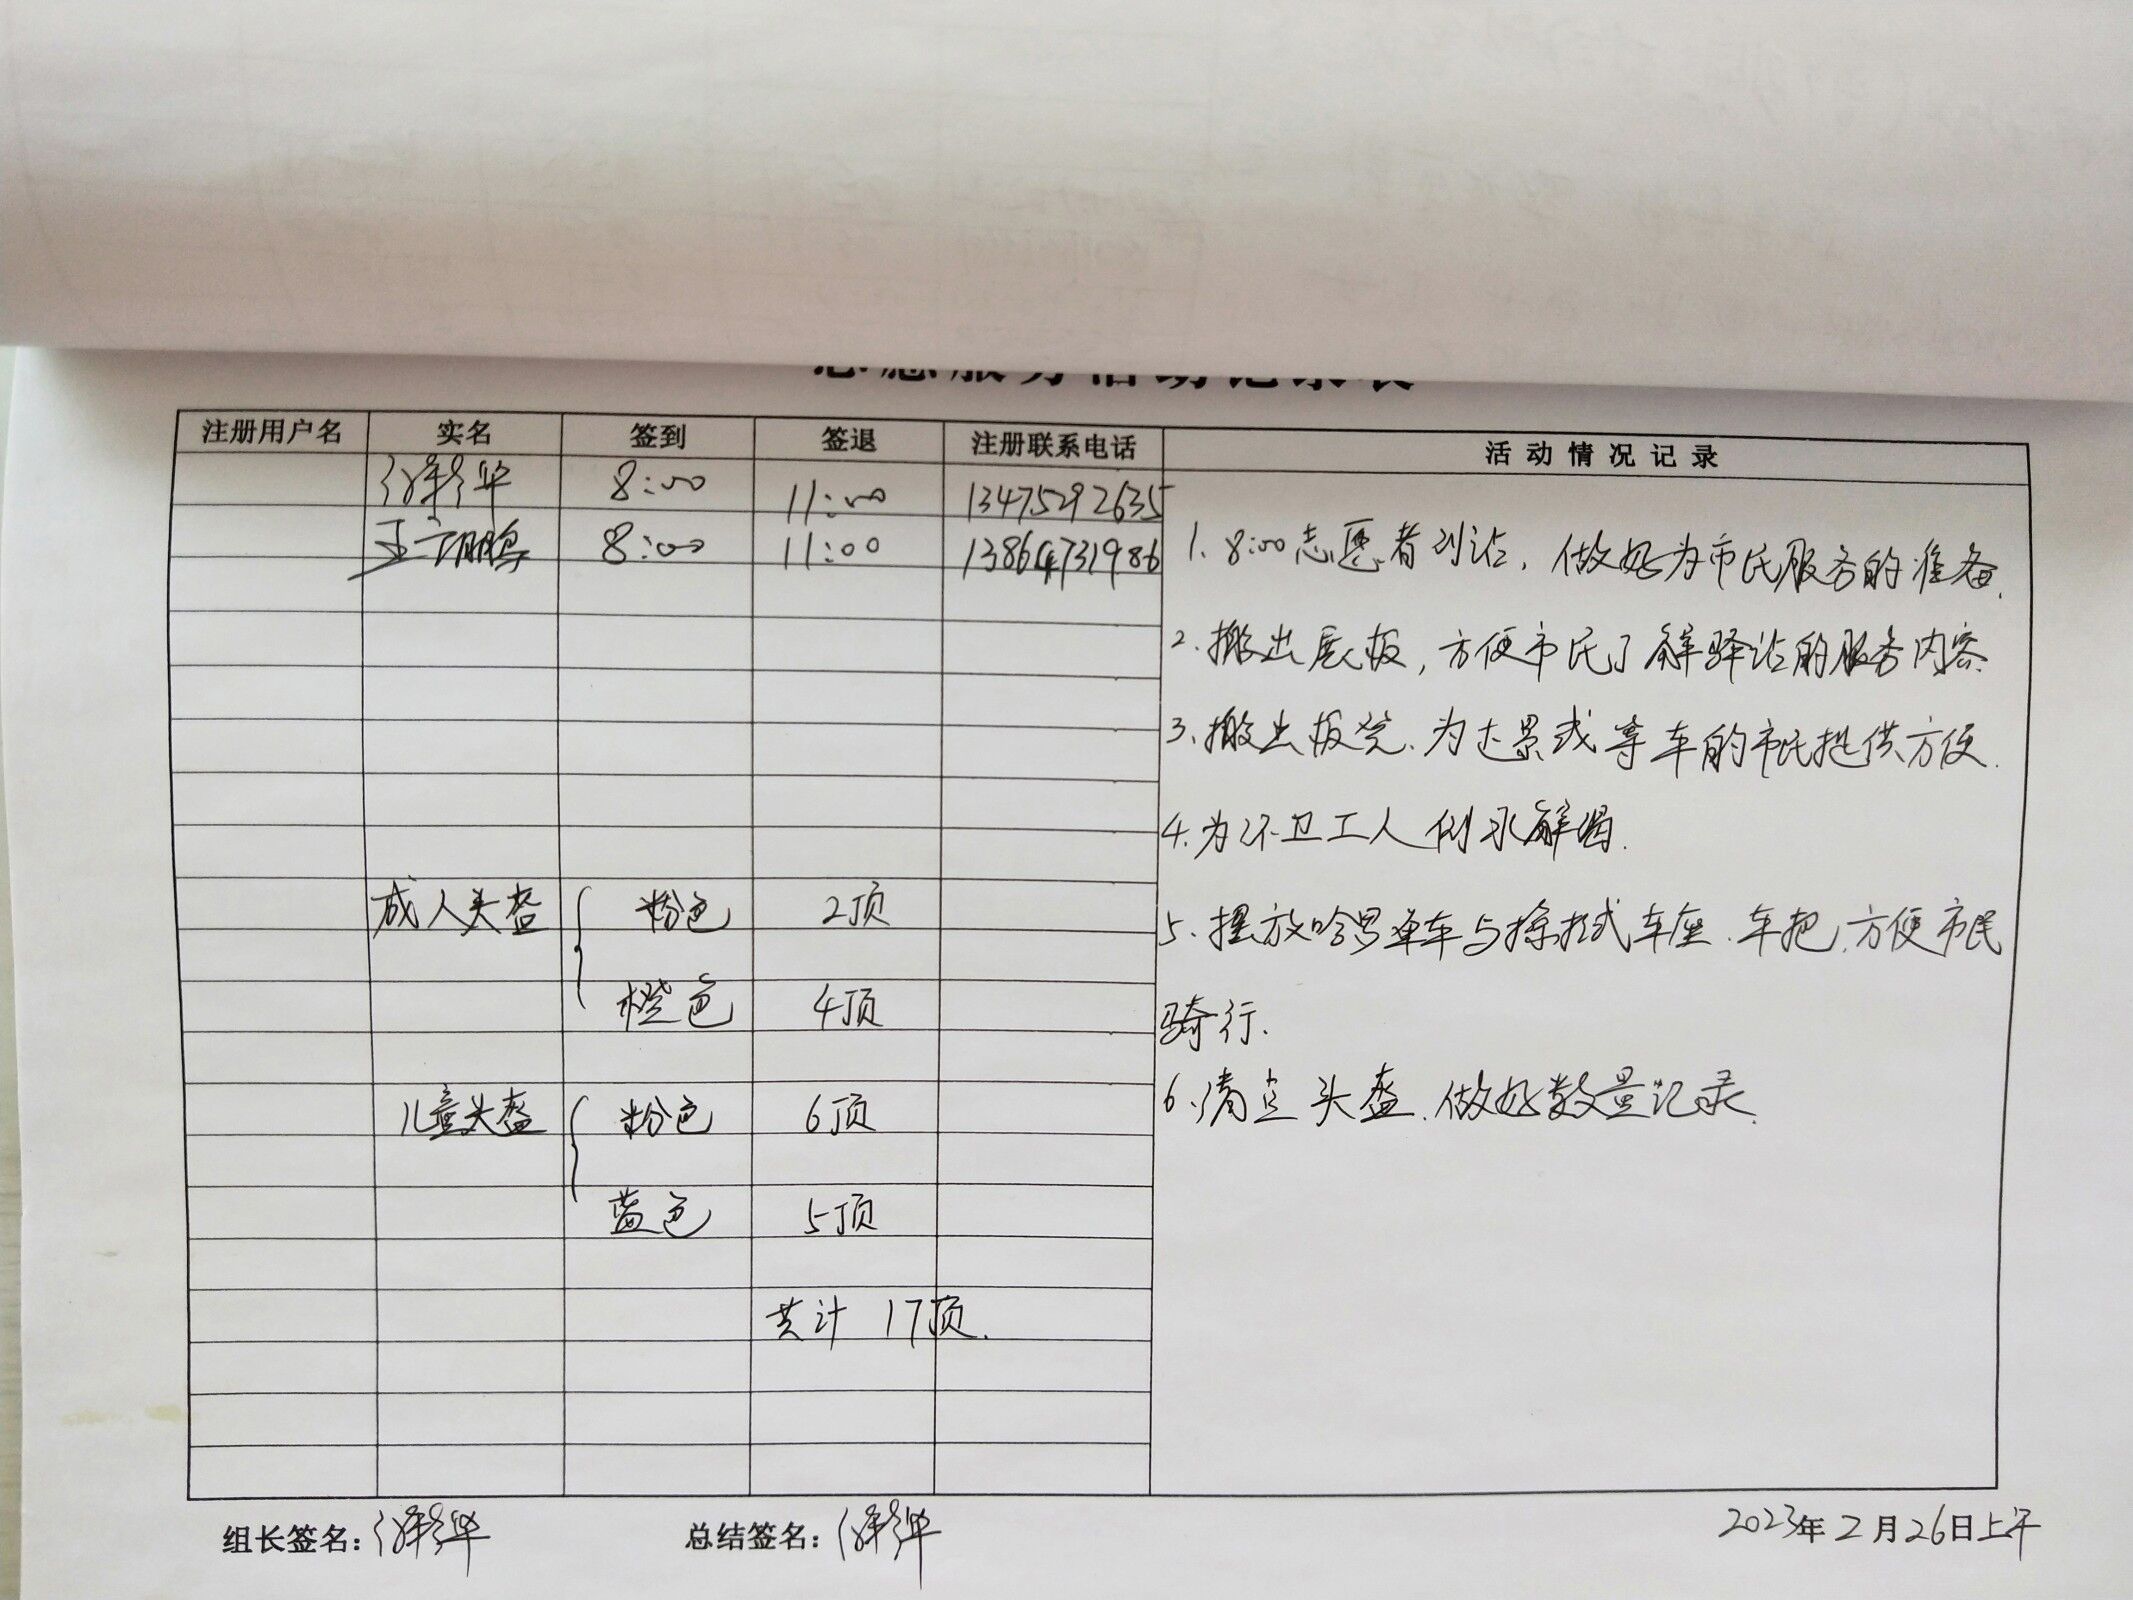 注册用户名 实名 签到 签退 注册联系电话 活动情况记录
8:00 11:00 13475292635
8:00 11:00 13864731986
1、8:00志愿者到站,做好为市民服务的准备.
2、搬出展板,方便市民了解驿站的服务内容.
3、搬出板凳、为过累或等车的市民提供方便.
4、为环卫工人倒水解渴.
成人头盔 粉色 2顶
5、摆放哈罗单车与擦拭车座、车把,方便市民
橙色 4顶
骑行.
儿童头盔 粉色 6顶
6、清点头盔,做好数量记录.
蓝色 5顶
共计 17顶.
组长签名: 总结签名: 2023年2月26日上午